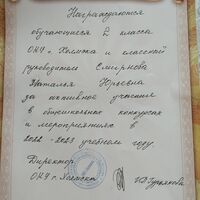 Награждаются
обучающиеся 2 класса
ОНУ г. Холмска и классный
руководитель Смирнова
Наталья Юрьевна
за активное участие
в общешкольных конкурсах
и мероприятиях в
2022-2023 учебном году.
Директор
ОНУ г. Холмска